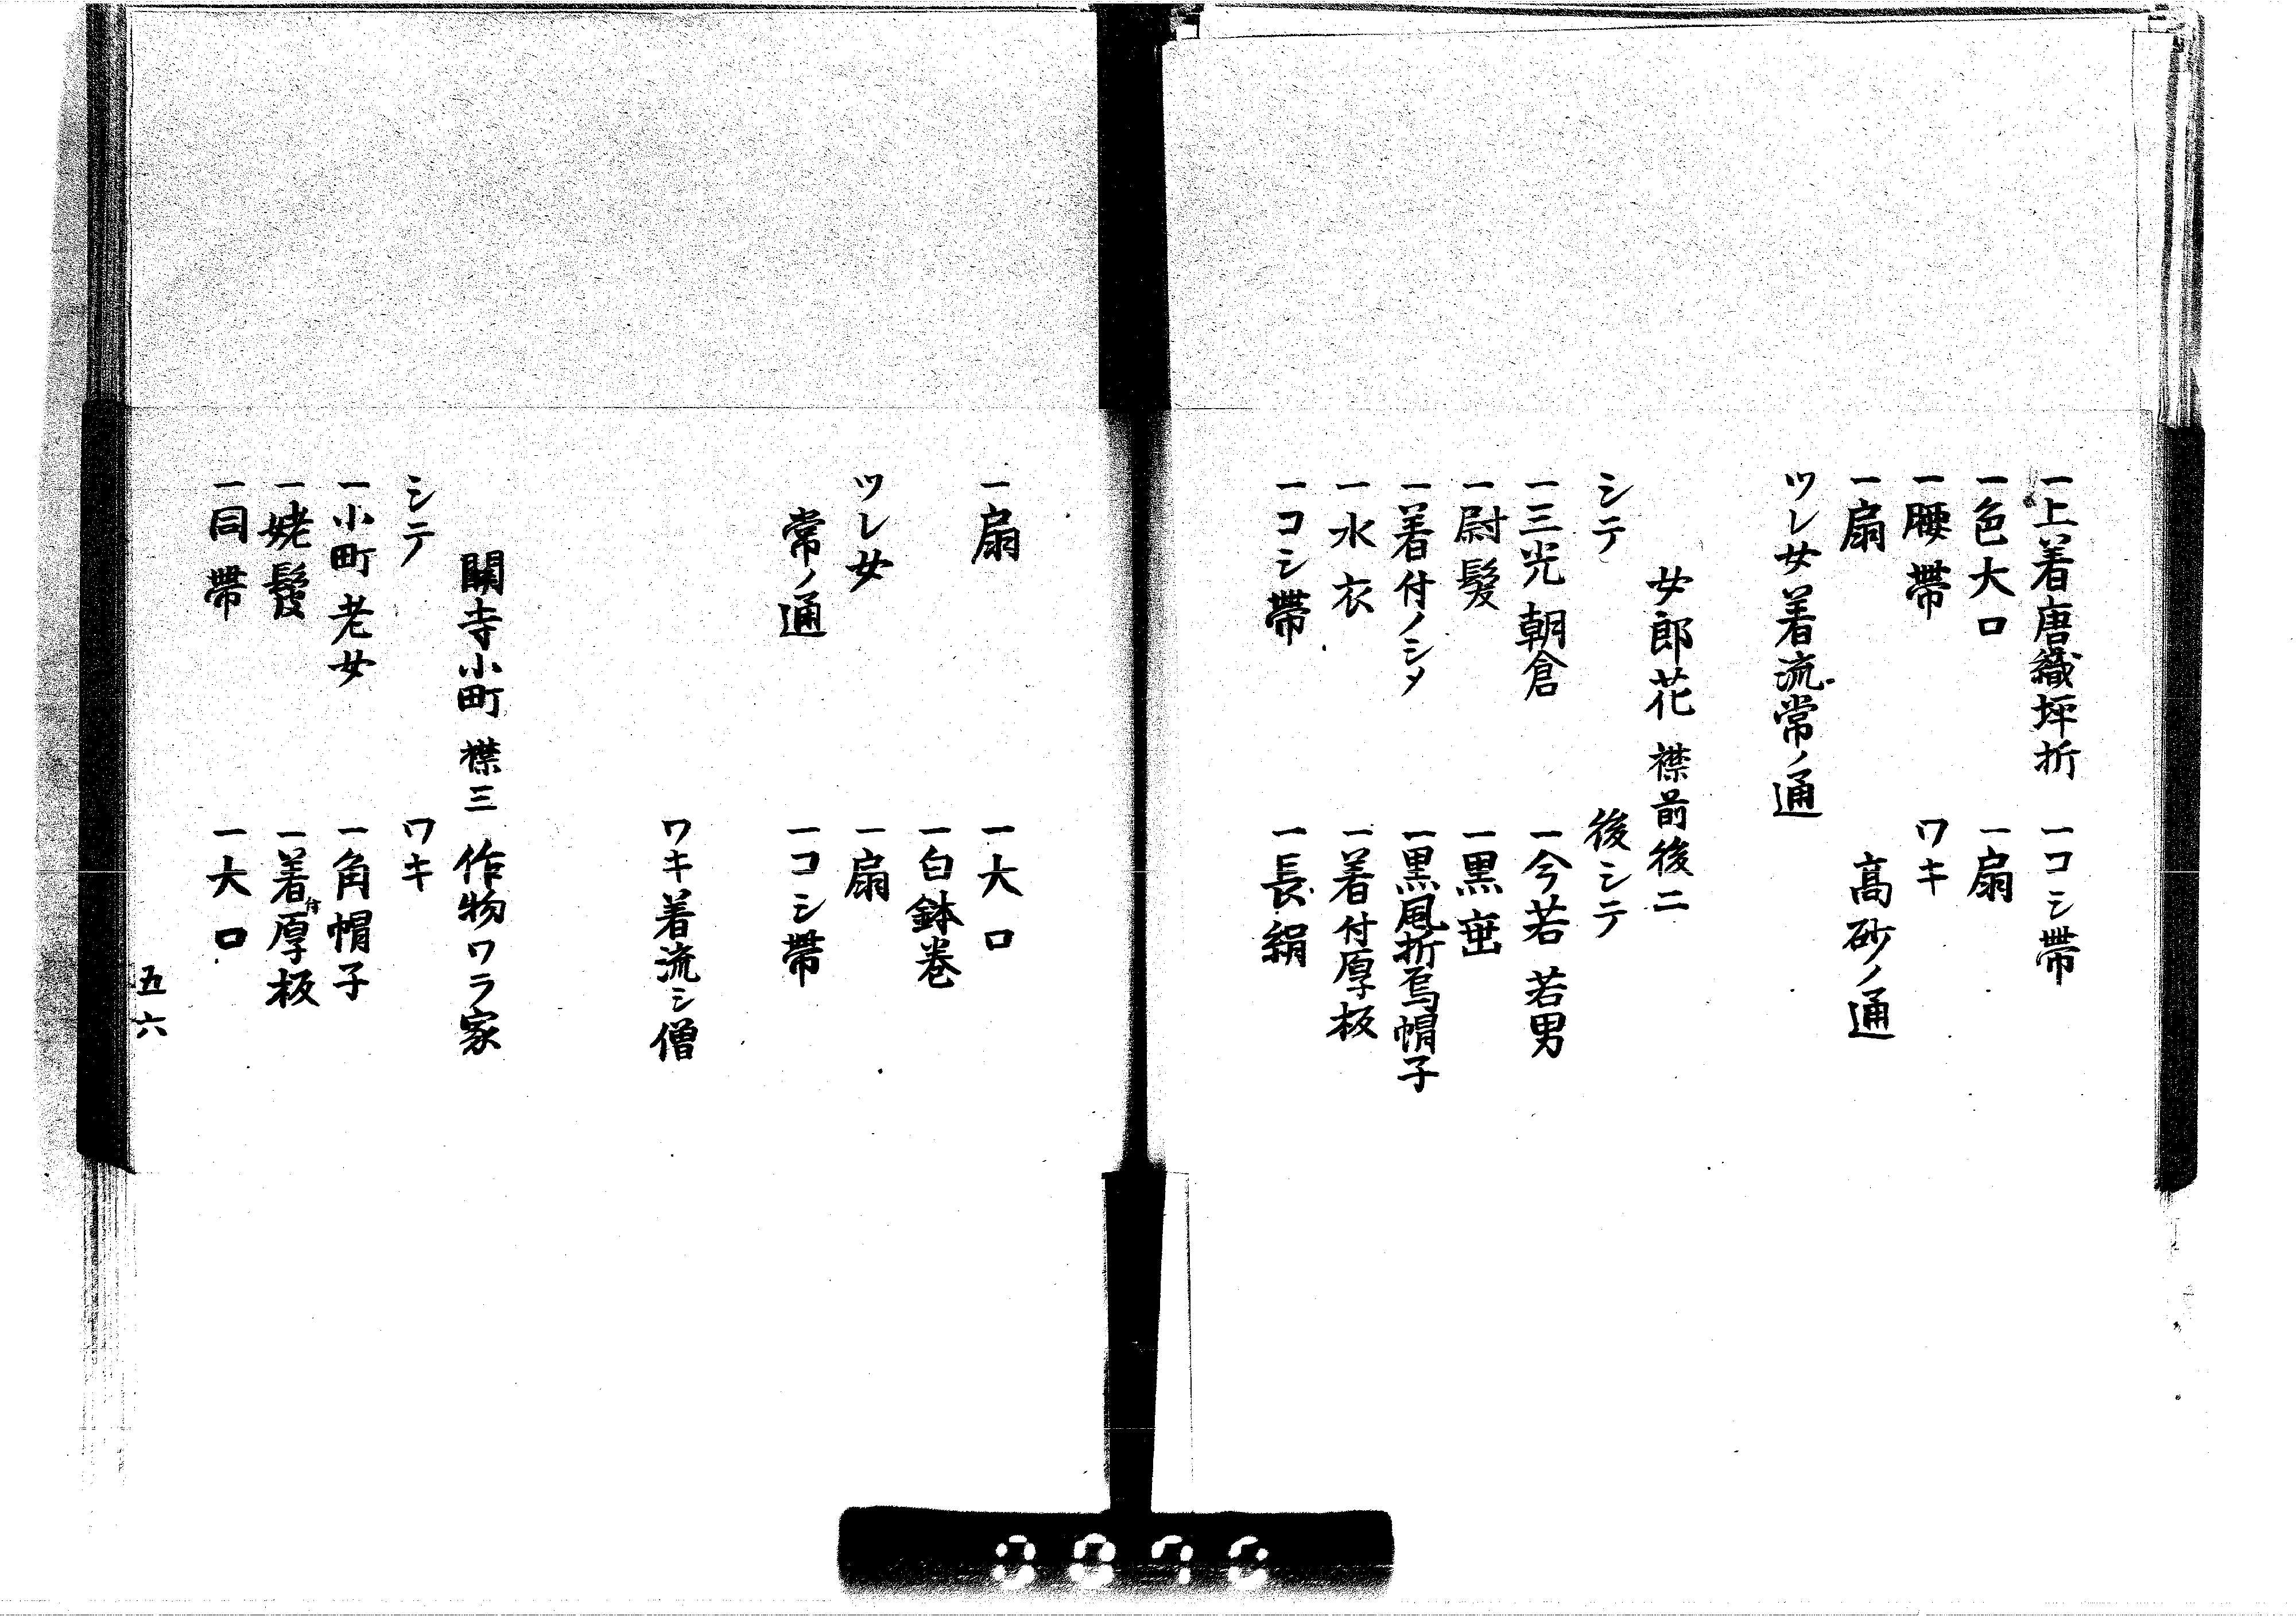 一上着唐織坪折　一コシ帯
一色大口　一扇
一腰帯　ワキ
一扇　高砂ノ通
ツレ女着流常ノ通
女郎花　襟前後二
シテ　後シテ
一三光　朝倉　一今若　若男
一尉髪　一黒垂
一着付ノシメ　一黒風折烏帽子
一水衣　一着付厚板
一コシ帯　一長絹
一扇　一大口
一白鉢巻
ツレ女　一扇
常ノ通　一コシ帯
ワキ着流シ僧
関寺小町　襟三　作物ワラ家
シテ　ワキ
一小町　老女　一角帽子
一姥髪　一着付厚板
一同帯　一大口
五六